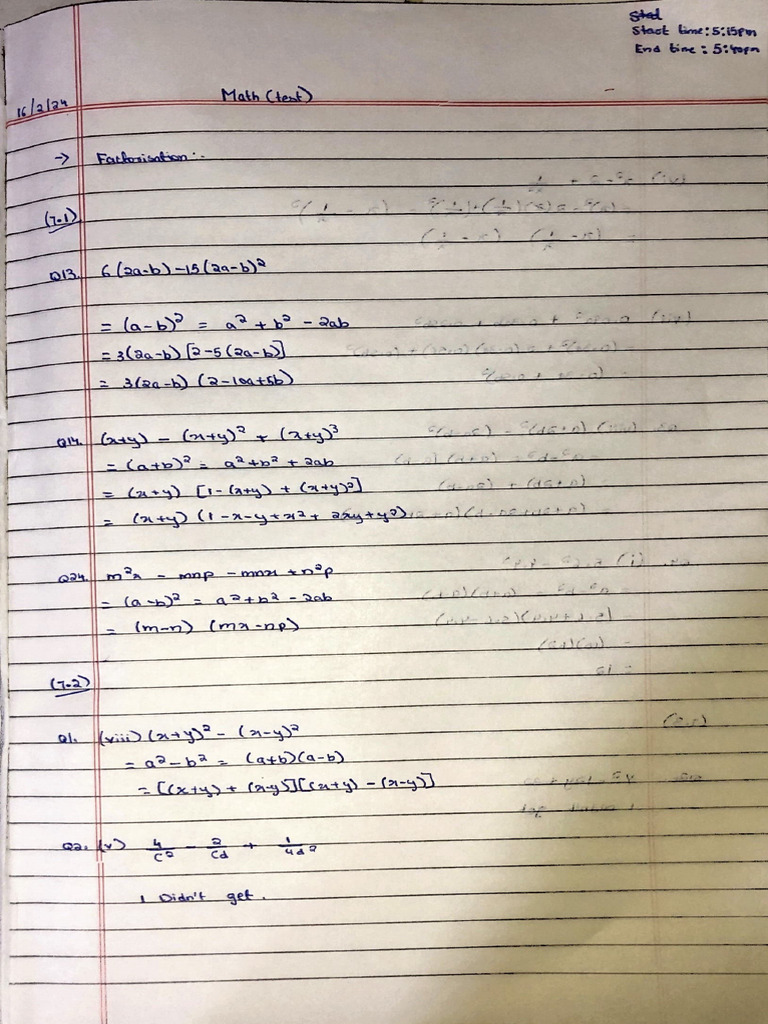 Stad
Start time: 5:15pm
End time : 5:40pm
16/2/24
Math (test)
→ Factorisation :-
(7.1)
Q13. 6(2a-b) - 15(2a-b)²
= (a-b)² = a² + b² - 2ab
= 3(2a-b) [2-5(2a-b)]
= 3(2a-b) (2-10a+5b)
Q14. (x+y) - (x+y)² + (x+y)³
= (a+b)² = a²+b² + 2ab
= (x+y) [1-(x+y) + (x+y)²]
= (x+y) (1-x-y+x²+ 2xy+y²)
Q24. m²x - mnp - mnx + n²p
= (a-b)² = a²+b² - 2ab
= (m-n) (mx-np)
(7.2)
Q1. (viii) (x+y)² - (x-y)²
= a² - b² = (a+b)(a-b)
= [(x+y) + (x-y)][(x+y) - (x-y)]
Q2. (v) 4/c² - 2/cd + 1/4d²
I Didn't get.